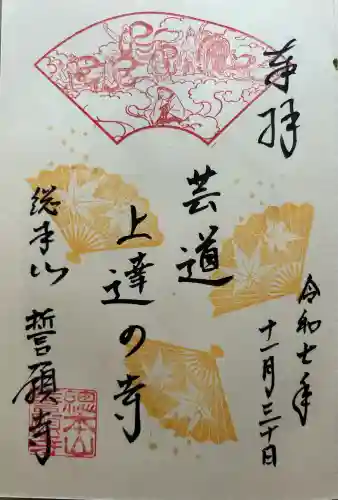 奉拝
令和七年
十一月三十日
芸道
上達の寺
総本山 誓願寺